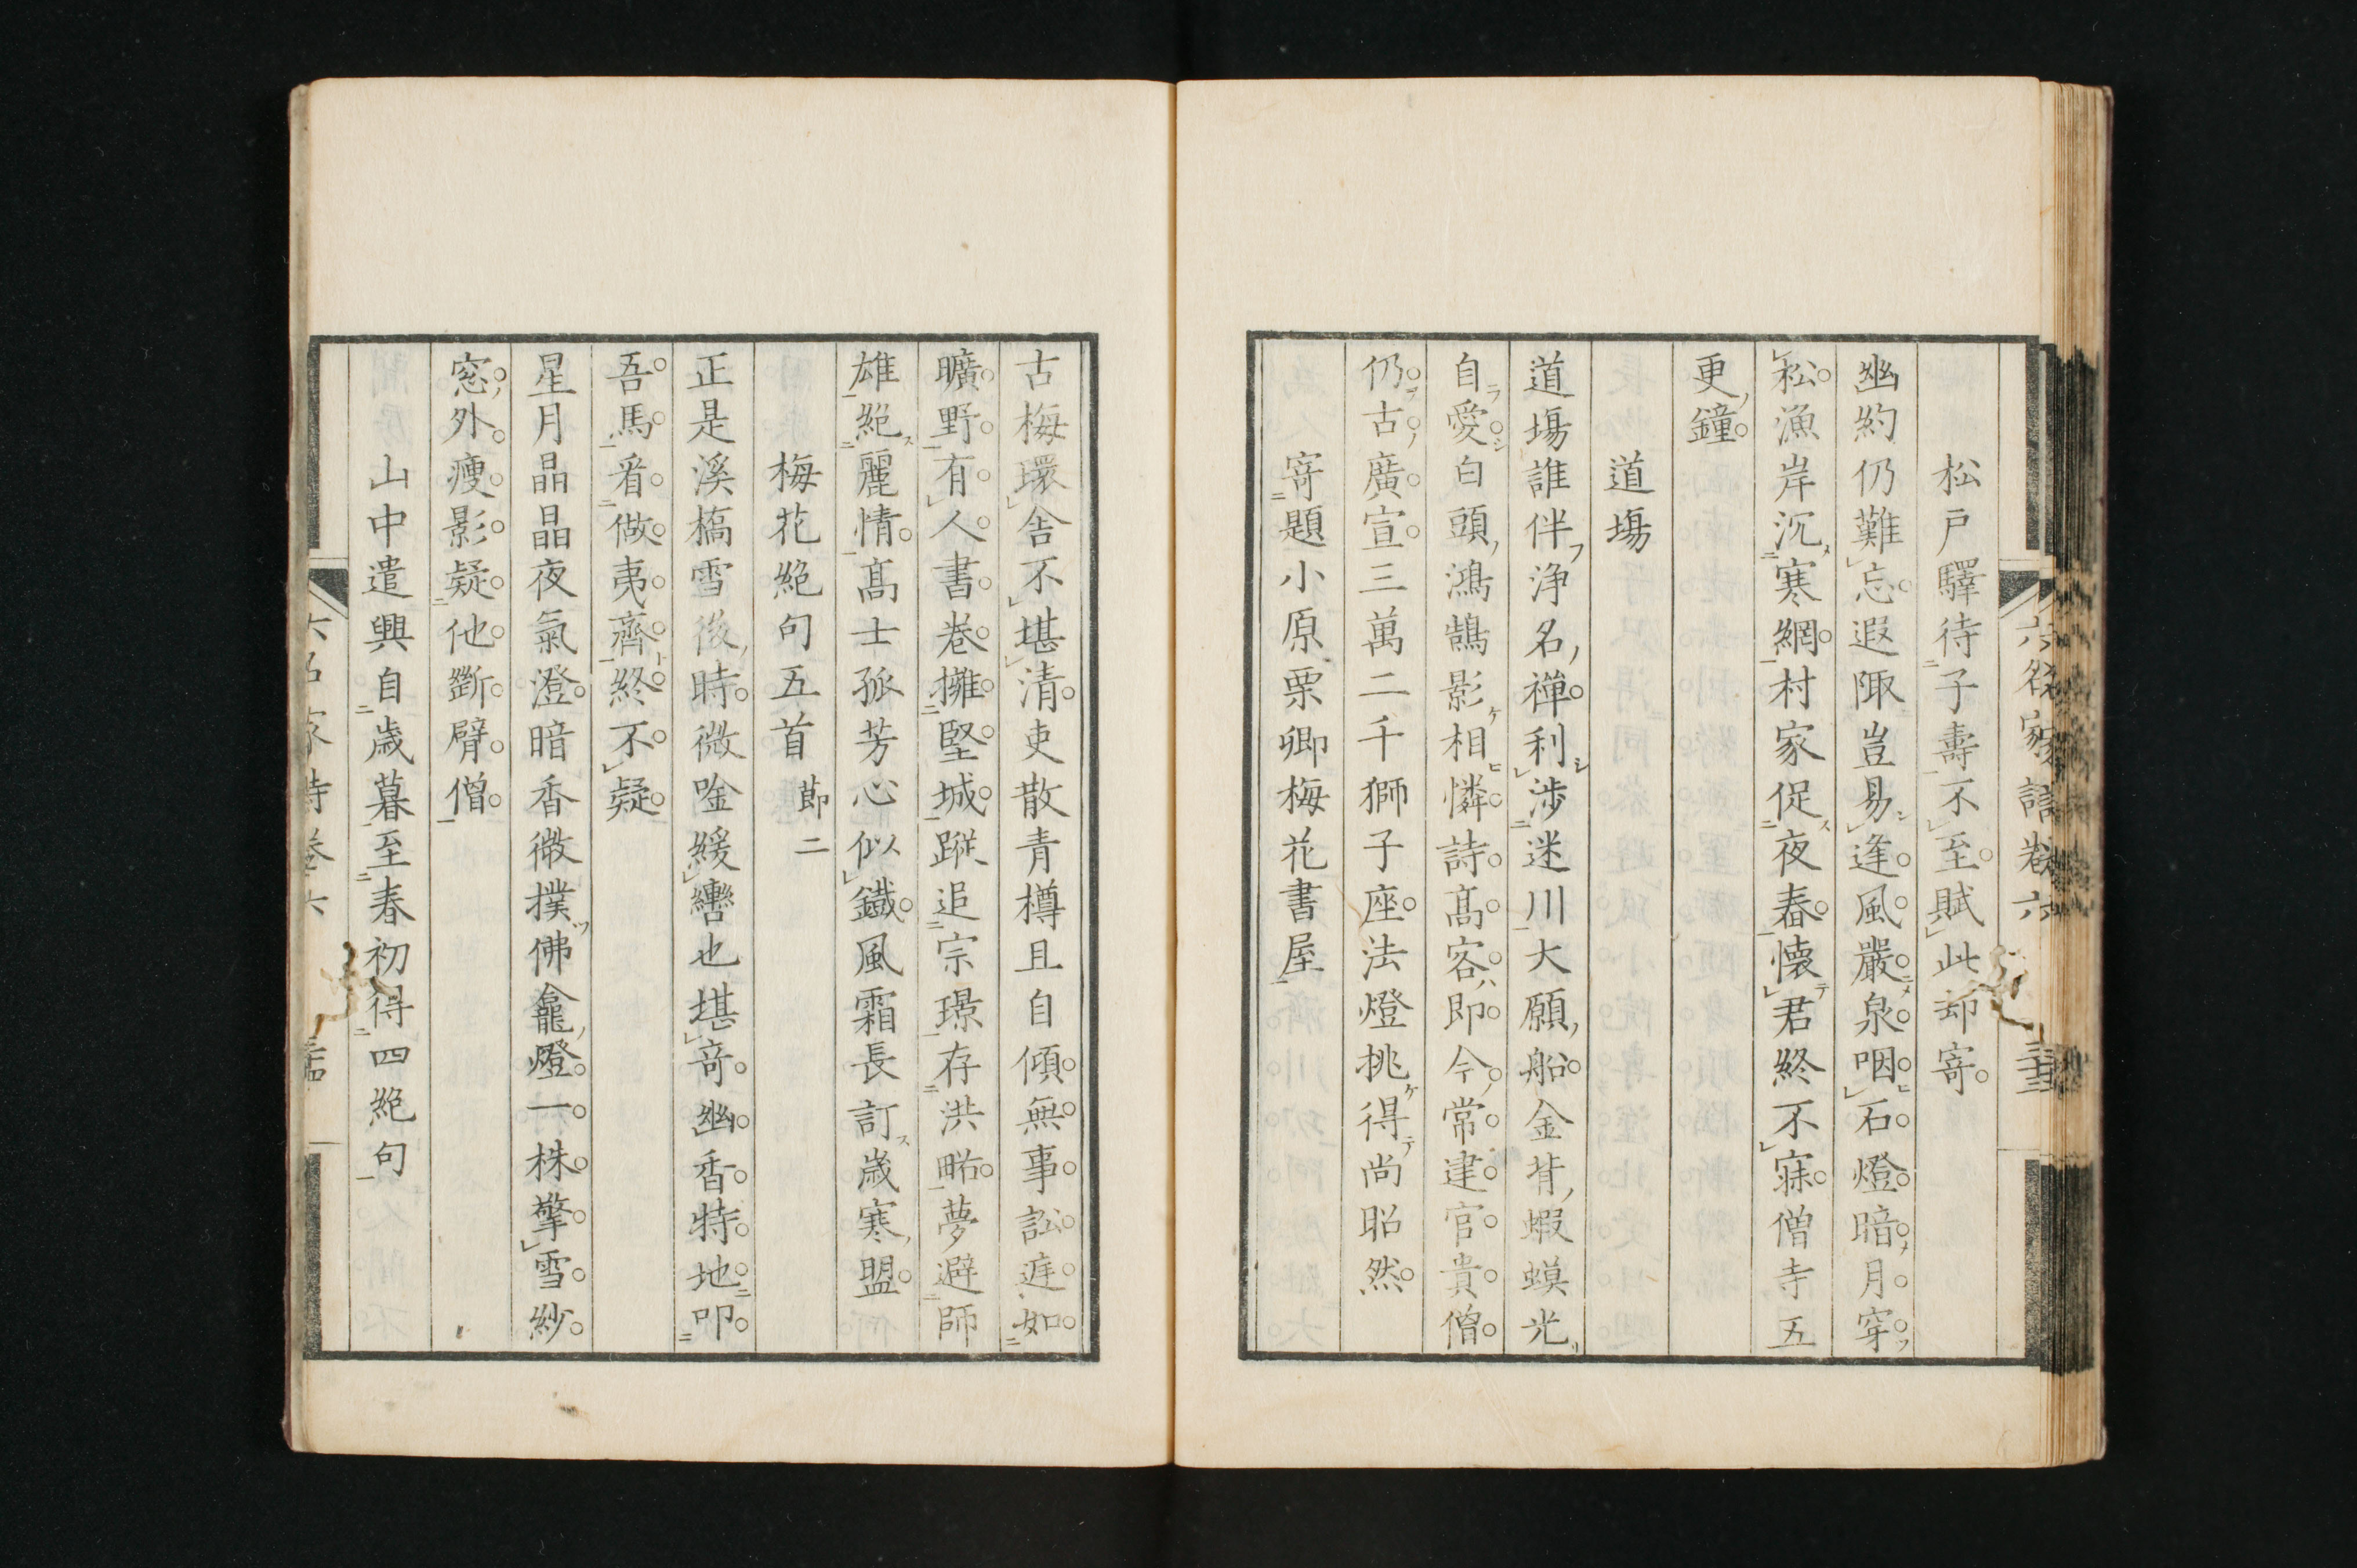 松戸驛待子壽不至賦此却寄
幽約仍難忘遐陬豈易逢風嚴泉咽石燈暗月穿
松漁岸沉寒網村家促夜舂懐君終不寐僧寺五
更鐘
道塲
道塲誰伴浄名禪利涉迷川大願船金背蝦蟆光
自愛白頭鴻鵠影相憐詩髙客即今常建官貴僧
仍古廣宣三萬二千獅子座法燈挑得尚昭然
寄題小原栗卿梅花書屋
古梅環舎不堪清吏散青樽且自傾無事訟庭如
曠野有人書巻擁堅城蹤追宗璟存洪略夢避師
雄絶麗情髙士孤芳心似鐵風霜長訂歳寒盟
梅花絶句五首 節二
正是溪橋雪後時微唫緩轡也堪竒幽香特地叩
吾馬看做夷齊終不疑
星月晶晶夜氣澄暗香微撲佛龕燈一株擎雪紗
窓外瘦影疑他斷臂僧
山中遣興自歳暮至春初得四絶句